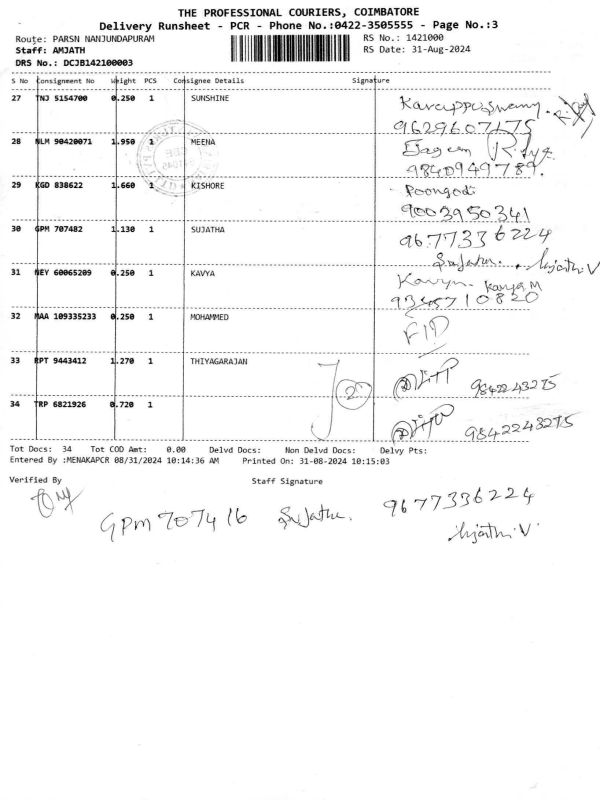 THE PROFESSIONAL COURIERS, COIMBATORE
Delivery Runsheet - PCR - Phone No.:0422-3505555 - Page No.:3
Route: PARSN NANJUNDAPURAM RS No.: 1421000
Staff: AMJATH RS Date: 31-Aug-2024
DRS No.: DCJB142100003
S No Consignment No Weight PCS Consignee Details Signature
27 TNJ 5154700 0.250 1 SUNSHINE Karuppuswamy
9629607175
28 NLM 90420071 1.950 1 MEENA
9840949789.
29 KGD 838622 1.660 1 KISHORE Poongodi
9003950341
30 GPM 707482 1.130 1 SUJATHA 9677336224
Sujatha.
31 NEY 60065209 0.250 1 KAVYA Kavya. Kavya M
9345710820
32 MAA 109335233 0.250 1 MOHAMMED
33 RPT 9443412 1.270 1 THIYAGARAJAN 9842243275
2
34 TRP 6821926 0.720 1 9842243275
Tot Docs: 34 Tot COD Amt: 0.00 Delvd Docs: Non Delvd Docs: Delvy Pts:
Entered By :MENAKAPCR 08/31/2024 10:14:36 AM Printed On: 31-08-2024 10:15:03
Verified By Staff Signature
GPM 707416 Sujatha. 9677336224